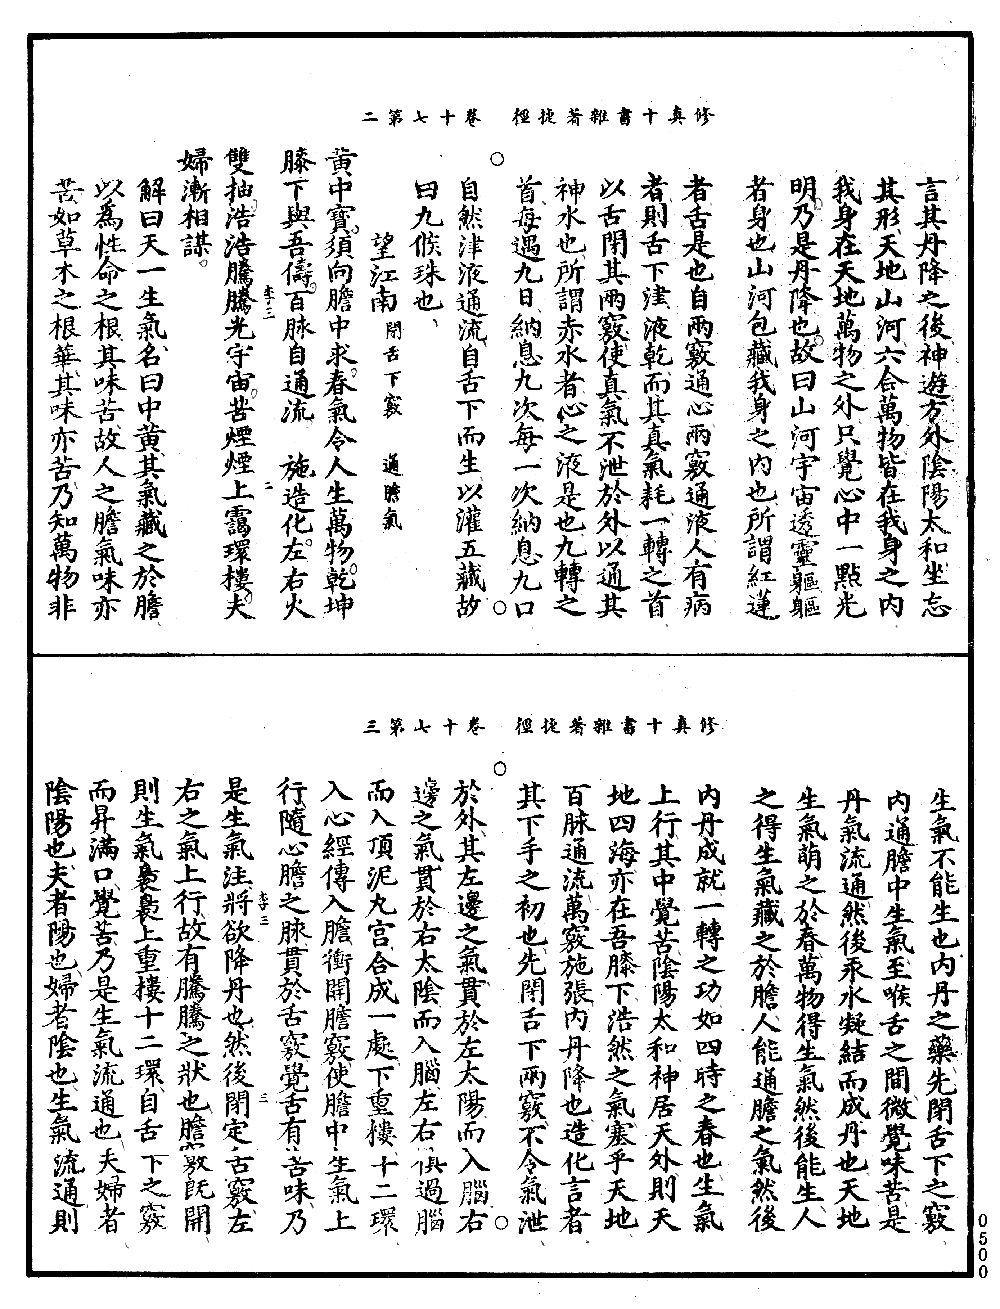 修真十書雜著捷徑　卷十七第二
言其丹降之後神遊方外陰陽太和坐忘
其形天地山河六合萬物皆在我身之内
我身在天地萬物之外只覺心中一點光
明乃是丹降也故曰山河宇宙透靈軀軀
者身也山河包藏我身之内也所謂紅蓮
者舌是也自兩竅通心兩竅通液人有病
者則舌下津液乾而其真氣耗一轉之首
以舌閉其兩竅使真氣不泄於外以通其
神水也所謂赤水者心之液是也九轉之
首每遇九日納息九次每一次納息九口
自然津液通流自舌下而生以灌五藏故
曰九候珠也
望江南　閉舌下竅　通膽氣
黄中寳須向膽中求春氣令人生萬物乾坤
膝下與吾儔百脉自通流　施造化左右火
雙抽浩浩騰騰光宇宙苦煙煙上靄環樓夫
婦漸相謀
解曰天一生氣名曰中黄其氣藏之於膽
以爲性命之根其味苦故人之膽氣味亦
苦如草木之根華其味亦苦乃知萬物非
李三
二
修真十書雜著捷徑　卷十七第三
生氣不能生也内丹之藥先閉舌下之竅
内通膽中生氣至喉舌之間微覺味苦是
丹氣流通然後汞水凝結而成丹也天地
生氣萌之於春萬物得生氣然後能生人
之得生氣藏之於膽人能通膽之氣然後
内丹成就一轉之功如四時之春也生氣
上行其中覺苦陰陽太和神居天外則天
地四海亦在吾膝下浩然之氣塞乎天地
百脉通流萬竅施張内丹降也造化言者
其下手之初也先閉舌下兩竅不令氣泄
於外其左邊之氣貫於左太陽而入腦右
邊之氣貫於右太陰而入腦左右俱過腦
而入頂泥丸宫合成一處下重樓十二環
入心經傳入膽衝開膽竅使膽中生氣上
行隨心膽之脉貫於舌竅覺舌有苦味乃
是生氣注將欲降丹也然後閉定舌竅左
右之氣上行故有騰騰之狀也膽竅既開
則生氣裊裊上重樓十二環自舌下之竅
而昇滿口覺苦乃是生氣流通也夫婦者
陰陽也夫者陽也婦者陰也生氣流通則
李三
三
0500